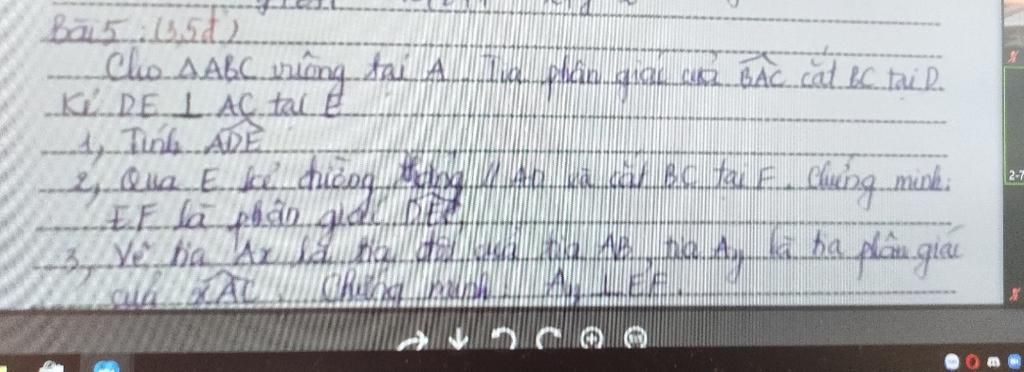 Bài 5: (3,5đ)
Cho ΔABC vuông tại A. Tia phân giác của BAC cắt BC tại D.
Kẻ DE ⊥ AC tại E
1, Tính ADE
2, Qua E kẻ đường thẳng // AD và cắt BC tại F. Chứng minh:
EF là phân giác DEC.
3, Vẽ tia Ax là tia đối của tia AB, tia Ay là tia phân giác
của xAC. Chứng minh: Ay ⊥ EF.
2-7